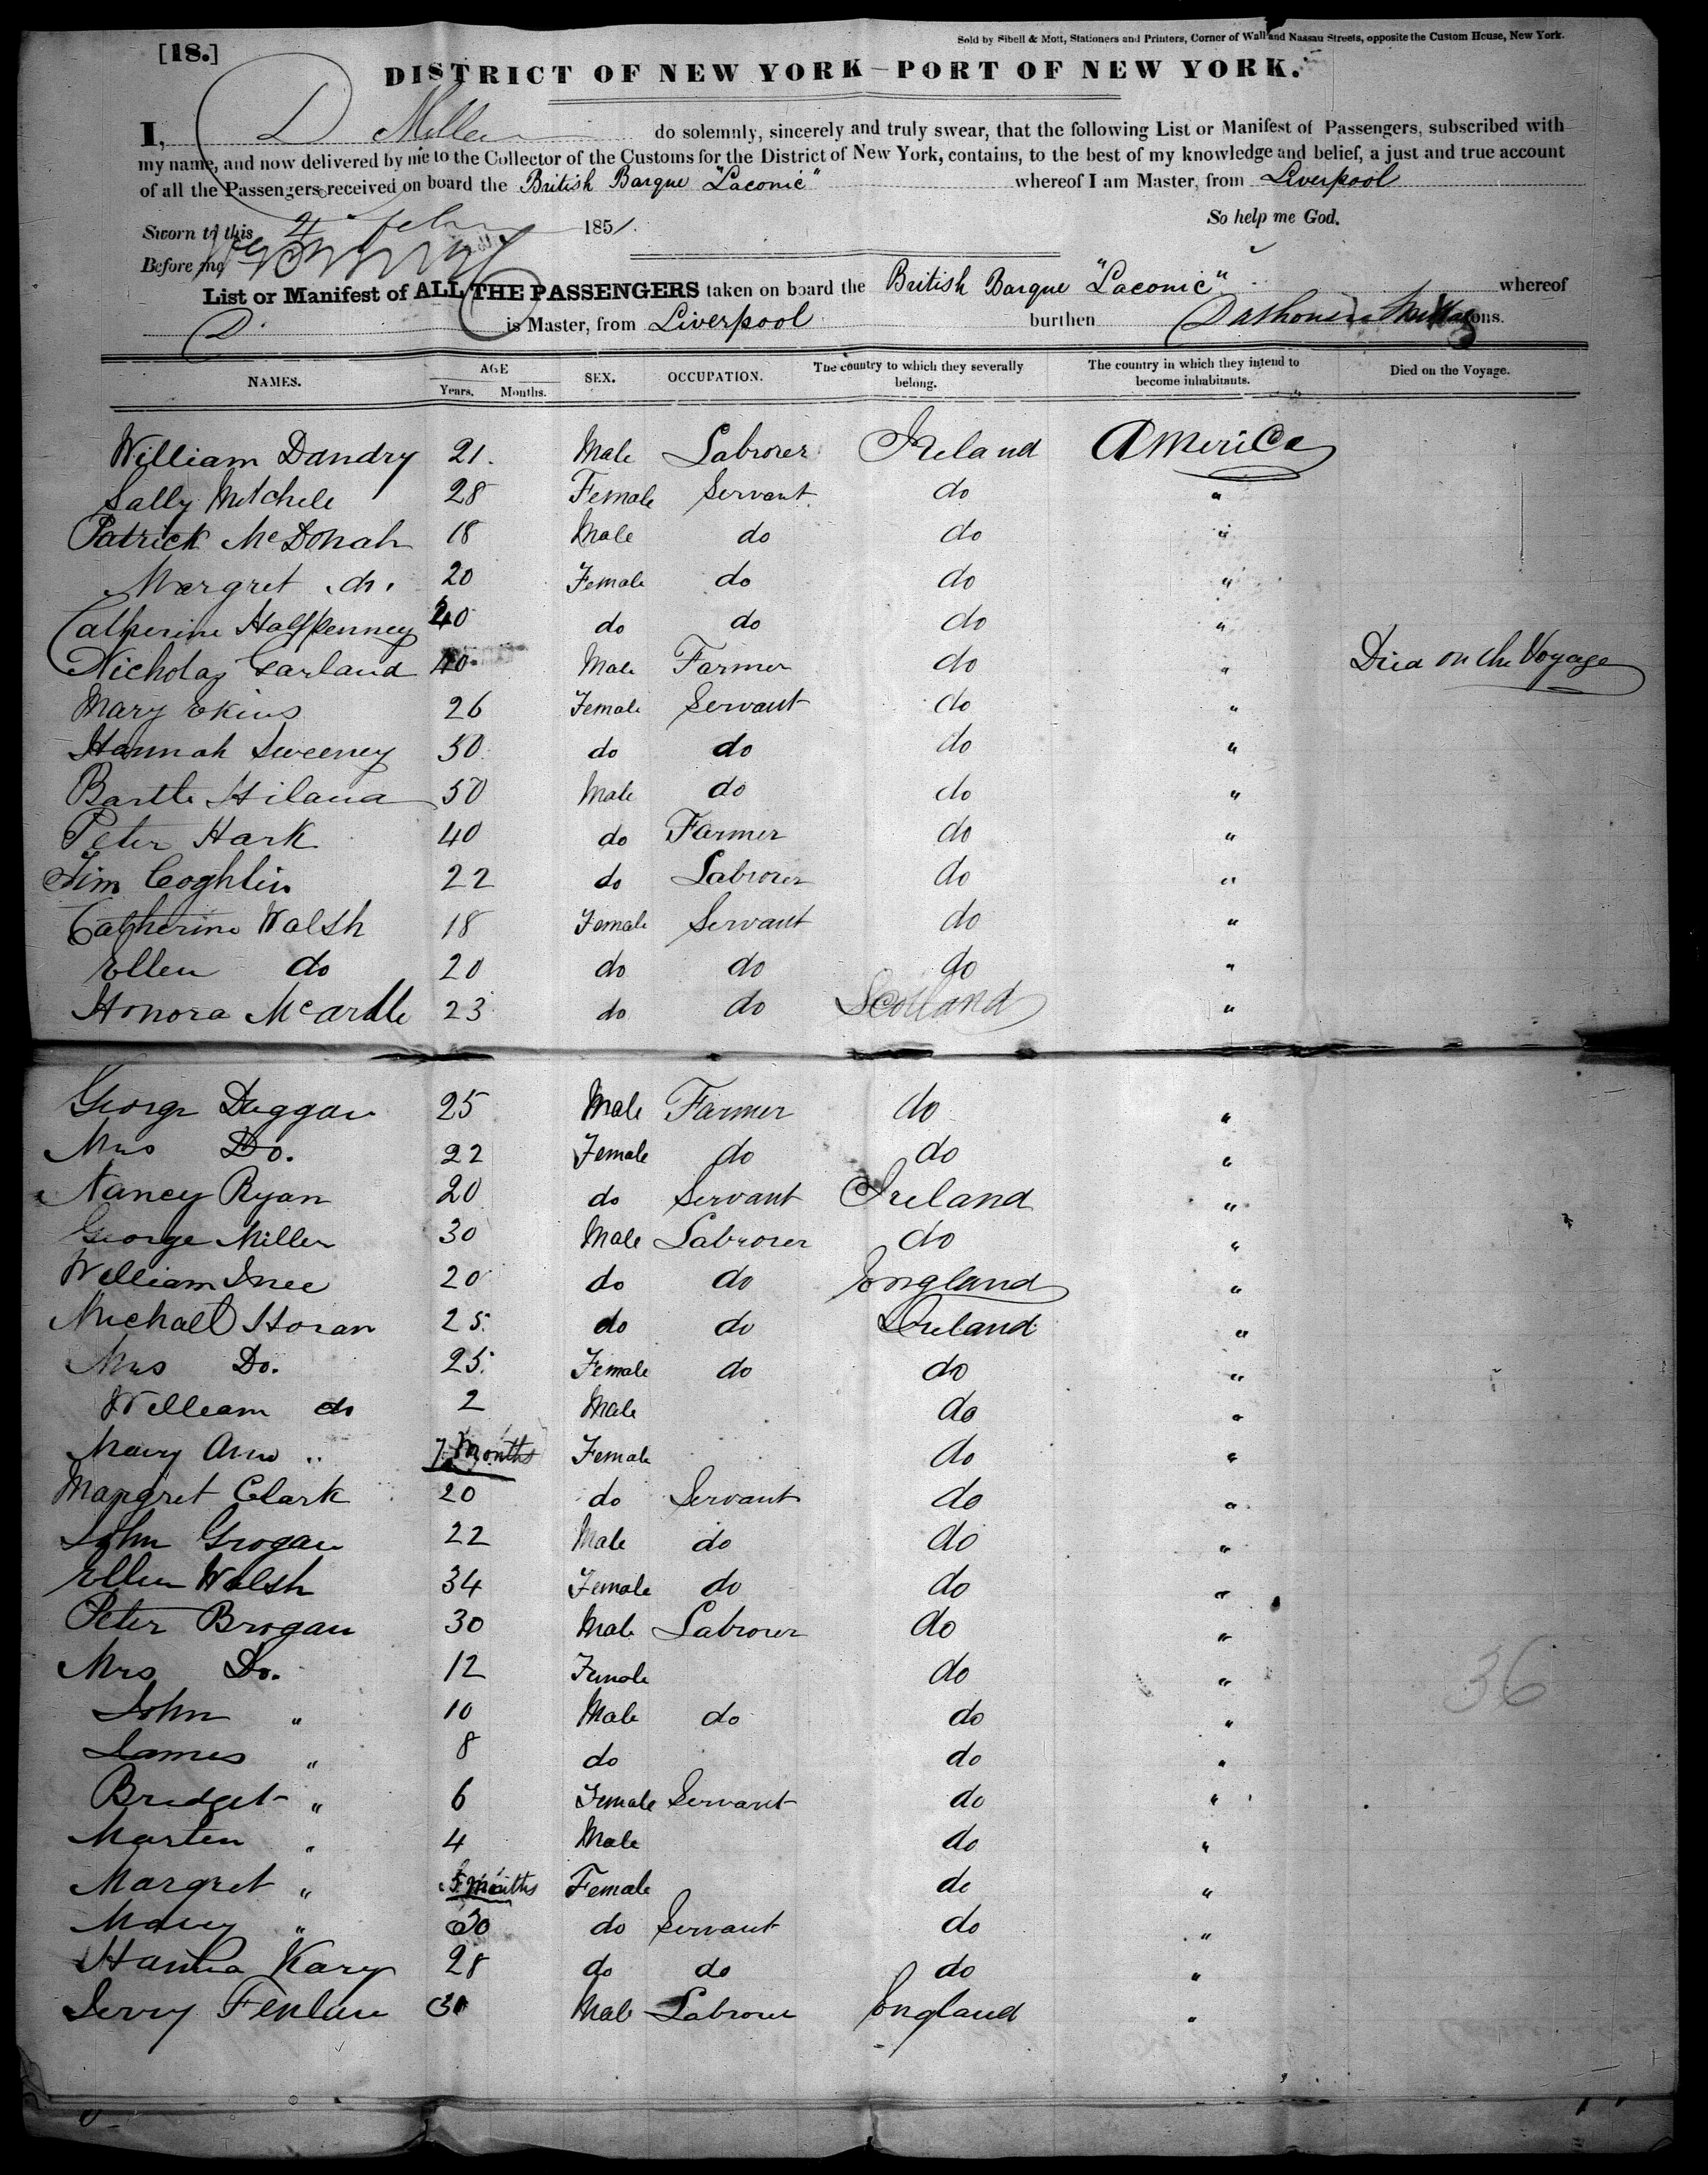 [18.]
Sold by Sibell & Mott, Stationers and Printers, Corner of Wall and Nassau Streets, opposite the Custom House, New York.
DISTRICT OF NEW YORK—PORT OF NEW YORK.
I, D Miller do solemnly, sincerely and truly swear, that the following List or Manifest of Passengers, subscribed with
my name, and now delivered by me to the Collector of the Customs for the District of New York, contains, to the best of my knowledge and belief, a just and true account
of all the Passengers received on board the British Barque "Laconic" whereof I am Master, from Liverpool
So help me God.
Sworn to this 4 Feb 1851.
Before me
List or Manifest of ALL THE PASSENGERS taken on board the British Barque "Laconic" whereof
D. is Master, from Liverpool burthen tons.
NAMES. AGE Years. Months. SEX. OCCUPATION. The country to which they severally belong. The country in which they intend to become inhabitants. Died on the Voyage.
William Dandry 21. Male Labrorer Ireland America
Sally Mitchele 28 Female Servant do "
Patrick McDonah 18 Male do do "
Margret do. 20 Female do do "
Catherine Halfpenney 40 do do do "
Nicholas Garland 40 Male Farmer do " Died on the Voyage
Mary Ekins 26 Female Servant do "
Hannah Sweeney 50 do do do "
Bartle Hilana 50 Male do do "
Peter Hark 40 do Farmer do "
Tim Coghlin 22 do Labrorer do "
Catherine Walsh 18 Female Servant do "
Ellen do 20 do do do "
Honora McArdle 23 do do Scotland "
George Duggan 25 Male Farmer do "
Mrs Do. 22 Female do do "
Nancy Ryan 20 do Servant Ireland "
George Miller 30 Male Labrorer do "
William Inee 20 do do England "
Michael Horan 25. do do Ireland "
Mrs Do. 25. Female do do "
William do 2 Male do "
Mary Ann " 7 Months Female do "
Margret Clark 20 do Servant do "
John Grogan 22 Male do do "
Ellen Walsh 34 Female do do "
Peter Brogan 30 Male Labrorer do "
Mrs Do. 12 Female do "
John " 10 Male do do "
James " 8 do do "
Bridget " 6 Female Servant do "
Marten " 4 Male do "
Margret " 5 Months Female do "
Mary " 30 do Servant do "
Hanna Kary 28 do do do "
Jerry Fenlan 30 Male Labrorer England "
36